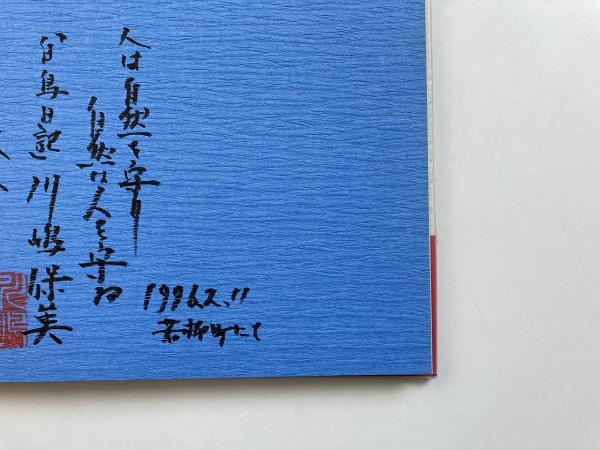 人は自然を守り
自然は人を守る
(「白鳥日記」) 川嶋保美
1996.2.11
若柳町にて